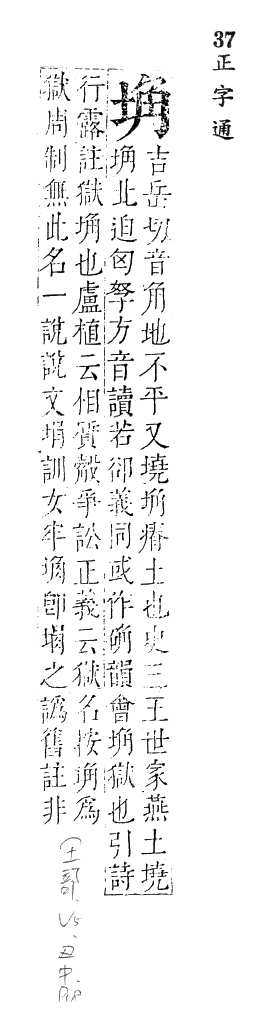 37正字通
埆
吉岳切音角地不平又墝埆瘠土也史三王世家燕土墝
埆北迫匈孥方音讀若郤義同或作确韻會埆獄也引詩
行露註獄埆也盧植云相質觳爭訟正義云獄名按埆爲
獄周制無此名一說說文埍訓女牢埆卽埍之譌舊註非
(土部、V5、丑中、P18